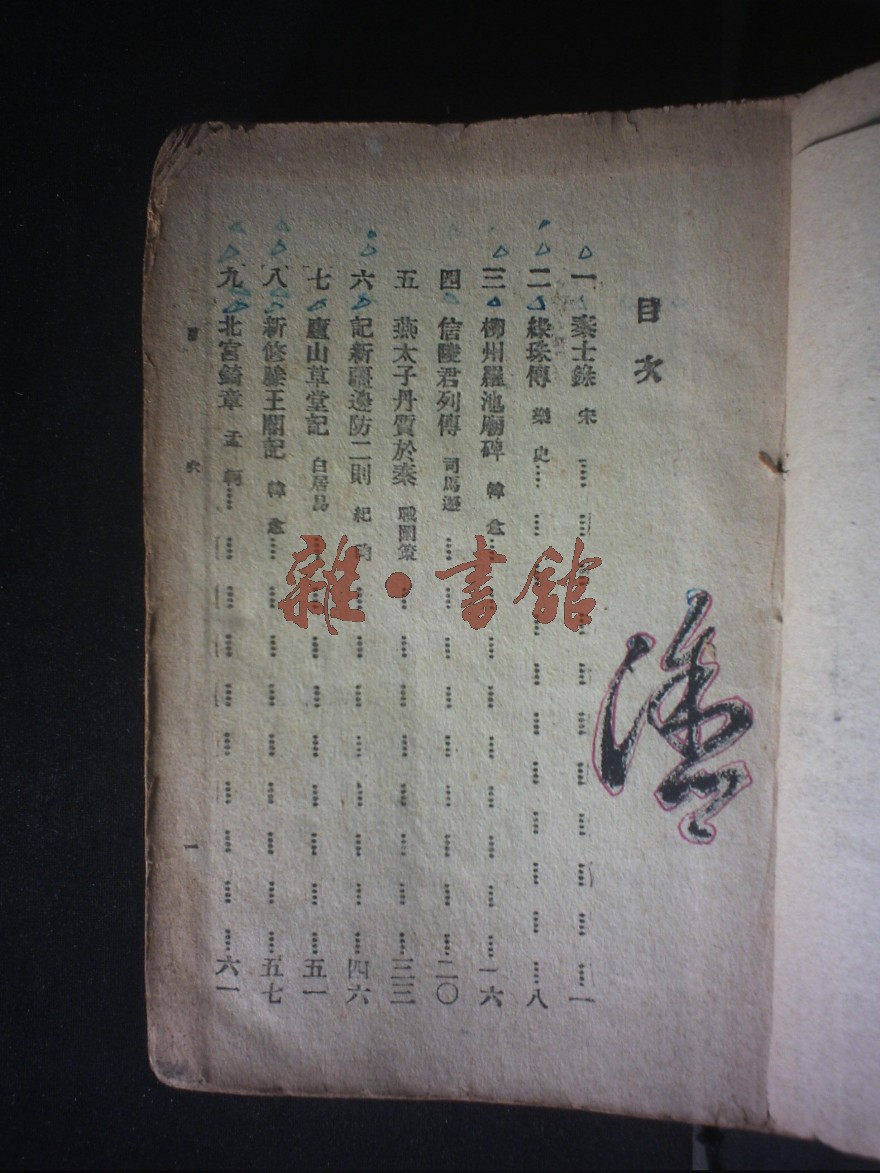 目次
一 秦士錄 宋 一
二 綠珠傳 樂史 八
三 柳州羅池廟碑 韓愈 一六
四 信陵君列傳 司馬遷 二〇
五 燕太子丹質於秦 戰國策 三三
六 記新疆邊防二則 紀昀 四六
七 廬山草堂記 白居易 五一
八 新修滕王閣記 韓愈 五七
九 北宮錡章 孟軻 六一
目次 一
雜·書館